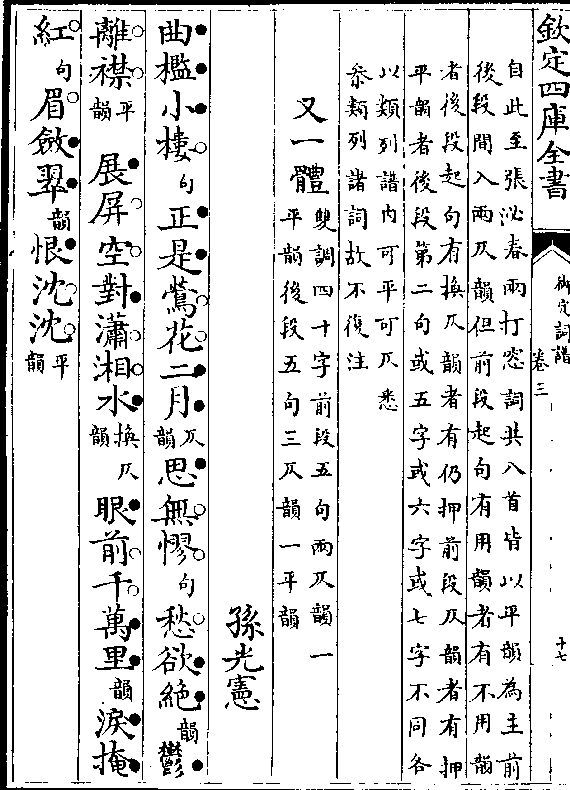 欽定四庫全書
御定詞譜
卷三
十七
自此至張泌春雨打窓詞共八首皆以平韻為主前
後段間入兩仄韻但前段起句有用韻者有不用韻
者後段起句有換仄韻者有仍押前段仄韻者有押
平韻者後段第二句或五字或六字或七字不同各
以類列譜内可平可仄悉
叅類列諸詞故不復注
又一體
雙調四十字前段五句兩仄韻一
平韻後段五句三仄韻一平韻
孫光憲
曲檻小樓句正是鶯花二月仄韻思無憀句愁欲絶韻鬱
離襟平韻 展屏空對瀟湘水換仄韻眼前千萬里韻淚掩
紅句眉斂翠韻恨沈沈平韻